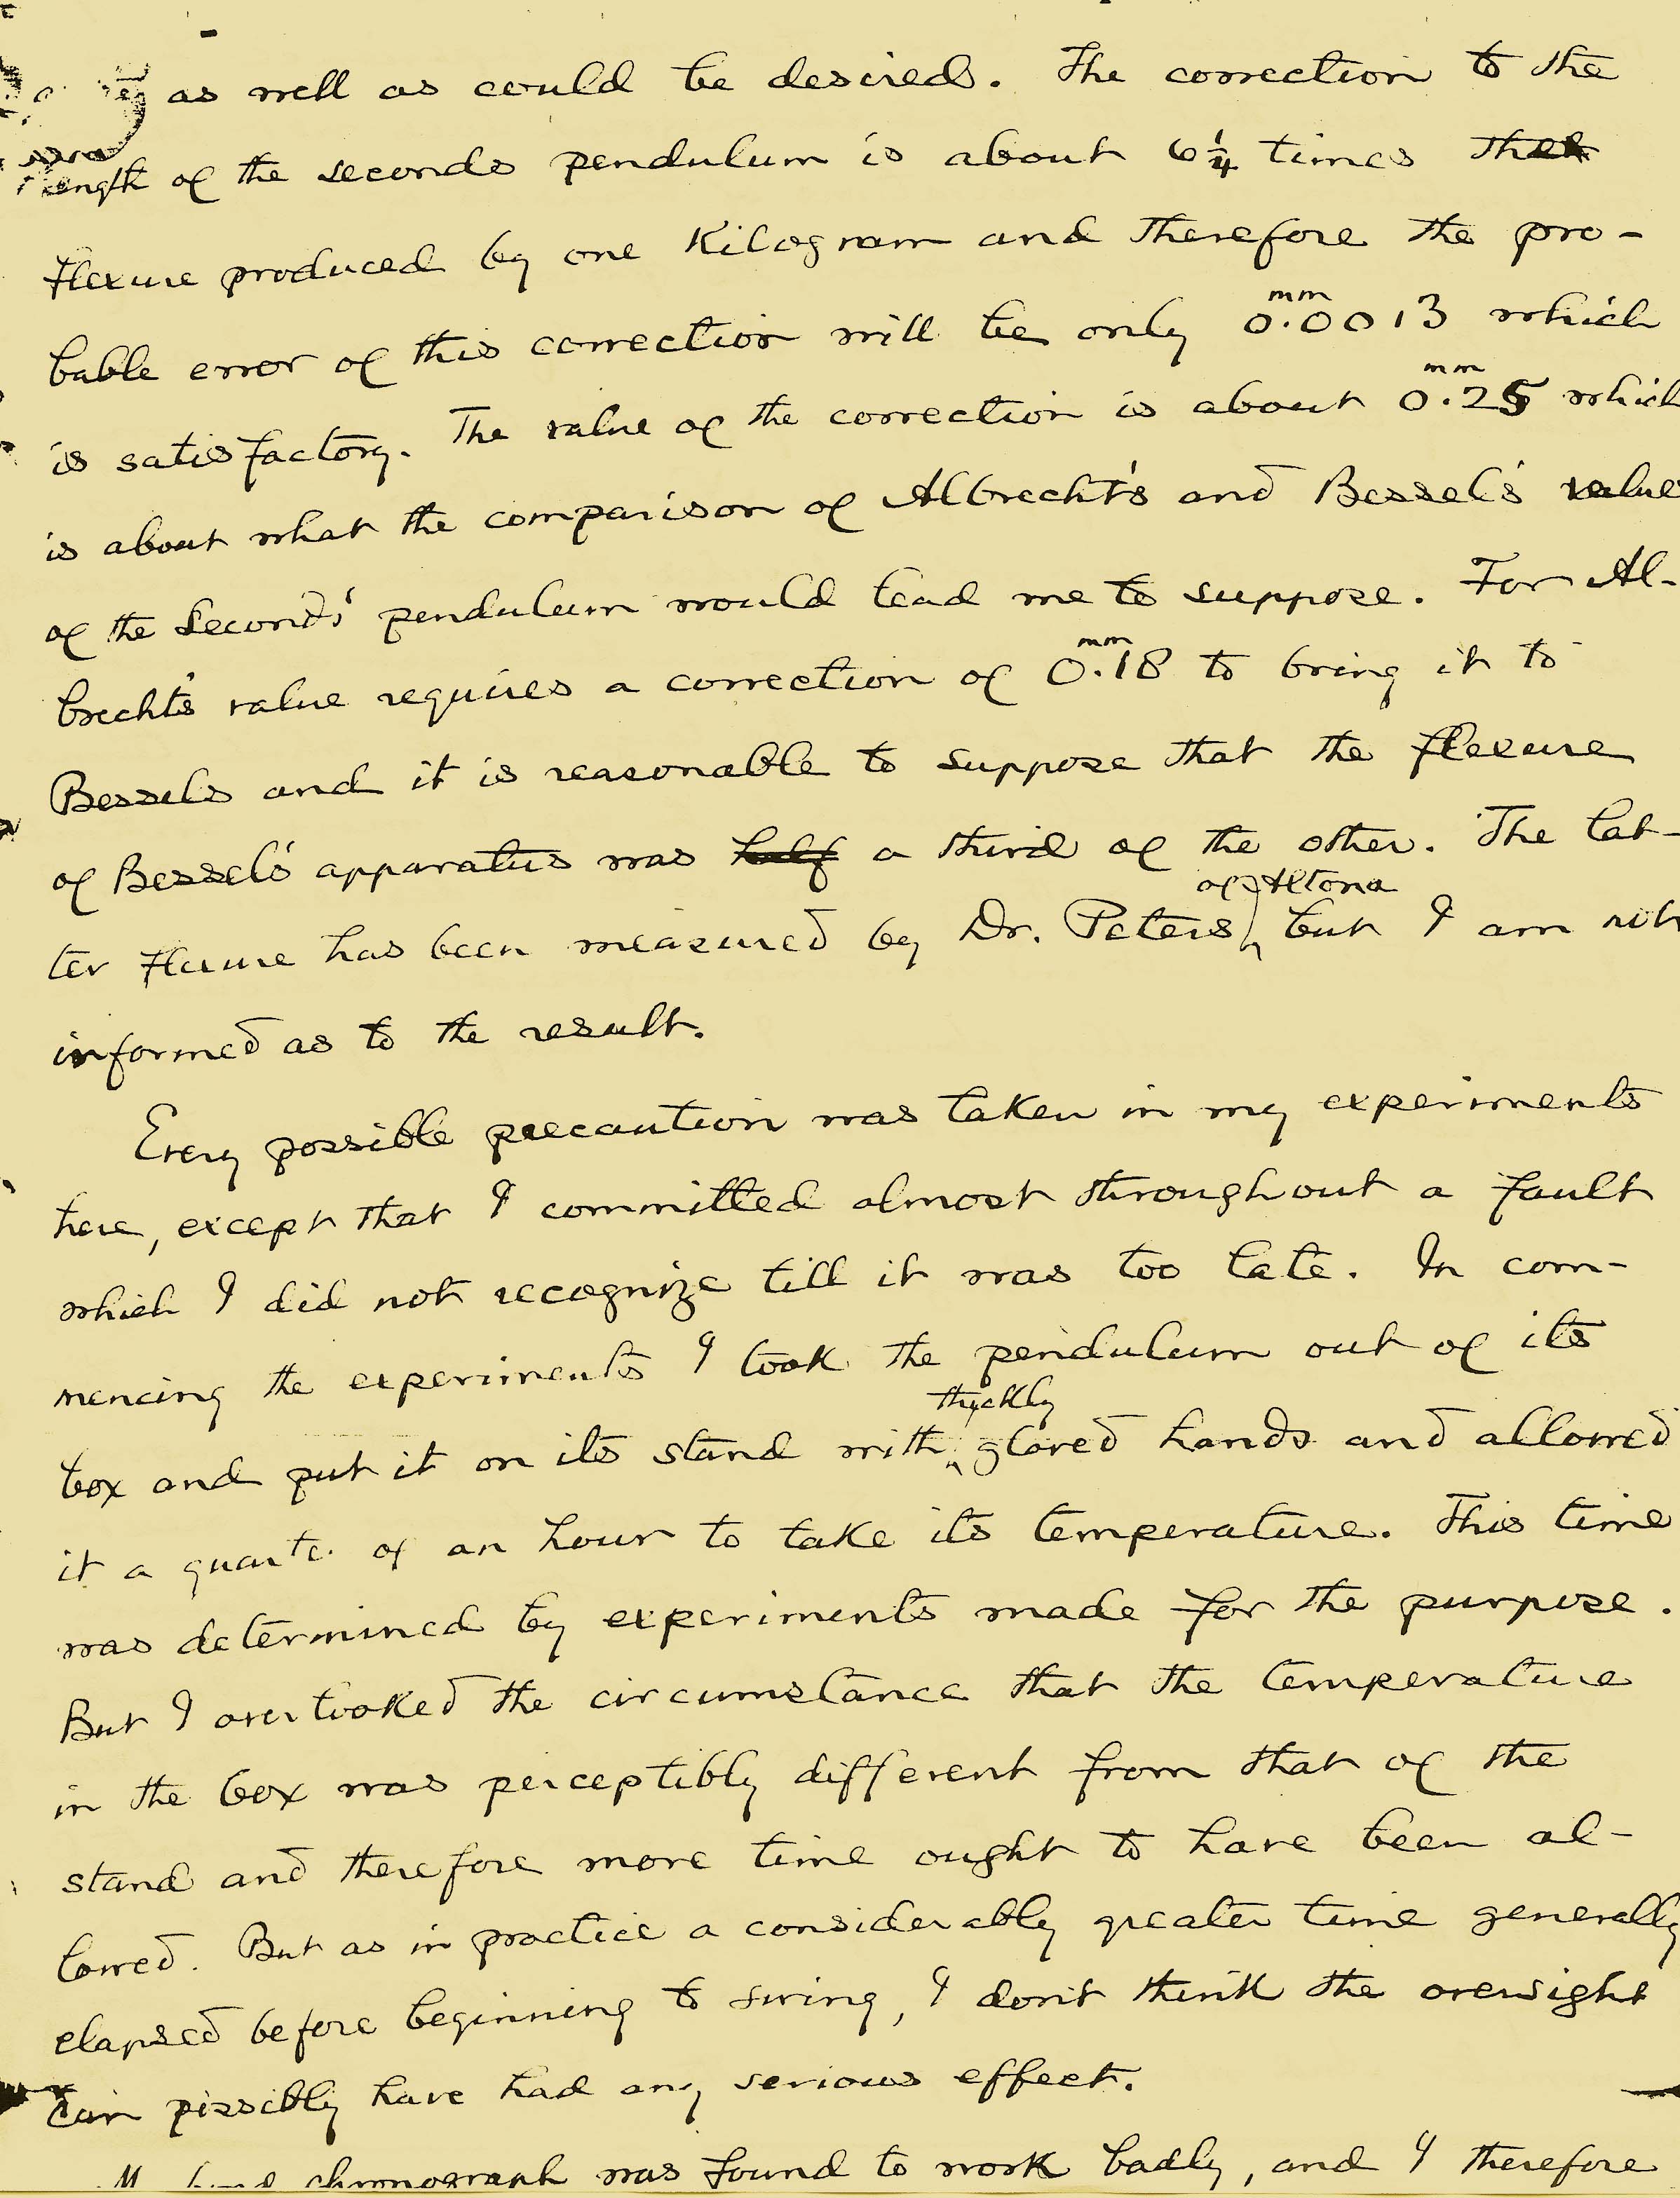 as well as could be desired. The correction to the
length of the seconds pendulum is about 6¼ times that
flexure produced by one Kilogram and therefore the pro-
bable error of this correction will be only 0.0013 mm which
is satisfactory. The value of the correction is about 0.25 mm which
is about what the comparison of Albrecht's and Bessel's value
of the Seconds' pendulum would lead me to suppose. For Al-
brecht's value requires a correction of 0.18 mm to bring it to
Bessels and it is reasonable to suppose that the flexure
of Bessel's apparatus was half a third of the other. The lat-
ter flexure has been measured by Dr. Peters of Altona, but I am not
informed as to the result.
Every possible precaution was taken in my experiments
here, except that I committed almost throughout a fault
which I did not recognize till it was too late. In com-
mencing the experiments I took the pendulum out of its
box and put it on its stand with thickly gloved hands and allowed
it a quarter of an hour to take its temperature. This time
was determined by experiments made for the purpose.
But I overlooked the circumstance that the temperature
in the box was perceptibly different from that of the
stand and therefore more time ought to have been al-
lowed. But as in practice a considerably greater time generally
elapsed before beginning to swing, I don't think the oversight
can possibly have had any serious effect.
chronograph was found to work badly, and I therefore